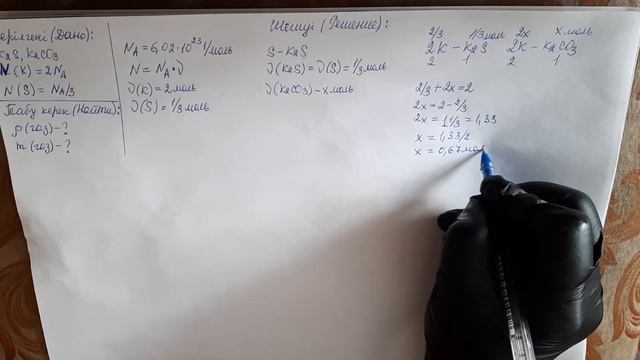 Берілгені (Дано):
K2S, K2CO3
N (K) = 2NA
N (S) = NA/3
Табу керек (Найти):
ρ (газ) - ?
m (газ) - ?
NA = 6,02 · 10^23 1/моль
N = NA · ν
ν(K) = 2 моль
ν(S) = 1/3 моль
Шешуі (Решение):
S – K2S
ν(K2S) = ν(S) = 1/3 моль
ν(K2CO3) – x моль
2/3 1/3 моль 2x x моль
2K – K2S 2K – K2CO3
2 1 2 1
2/3 + 2x = 2
2x = 2 – 2/3
2x = 1 1/3 = 1,33
x = 1,33/2
x = 0,67 мол